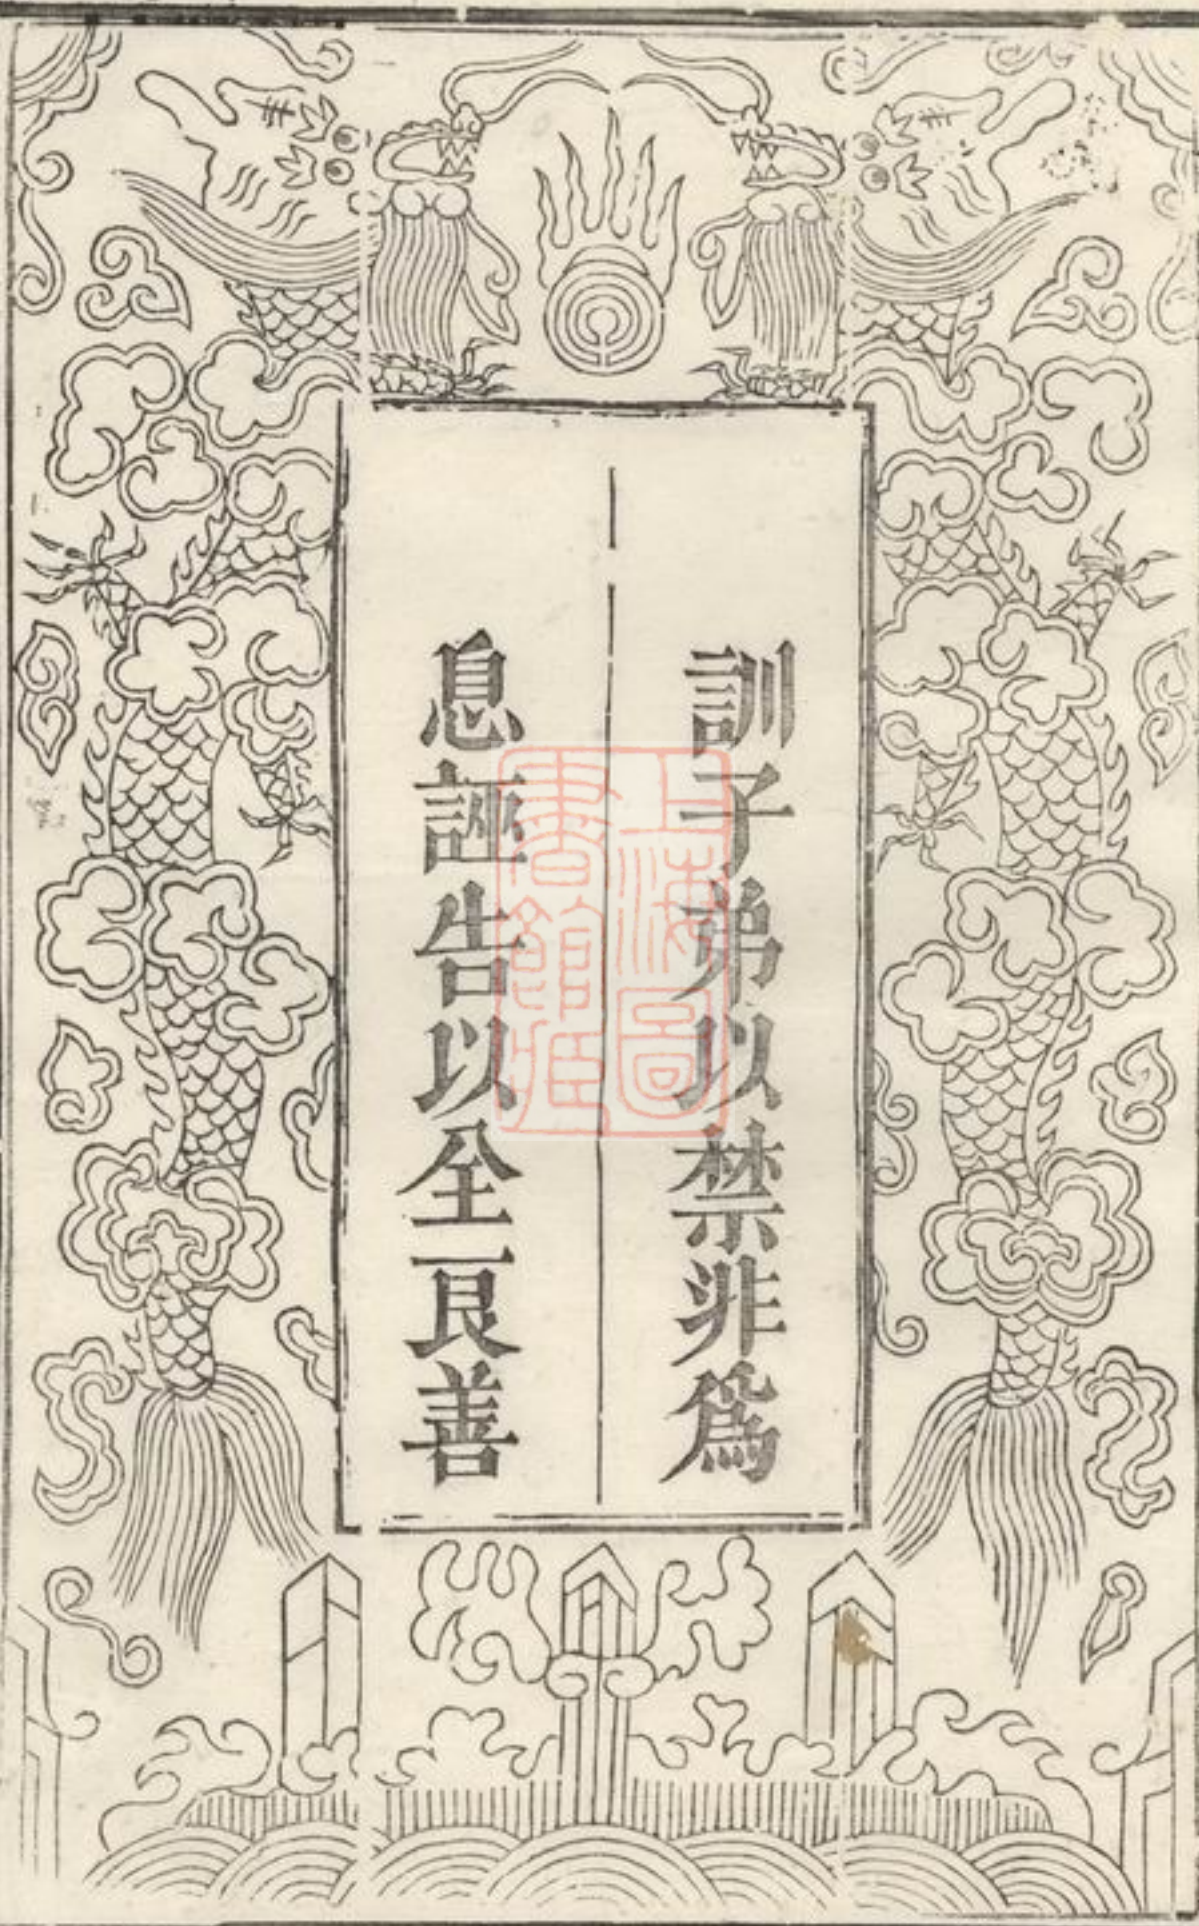 訓子弟以禁非爲
息誣告以全良善
上海圖
書館藏